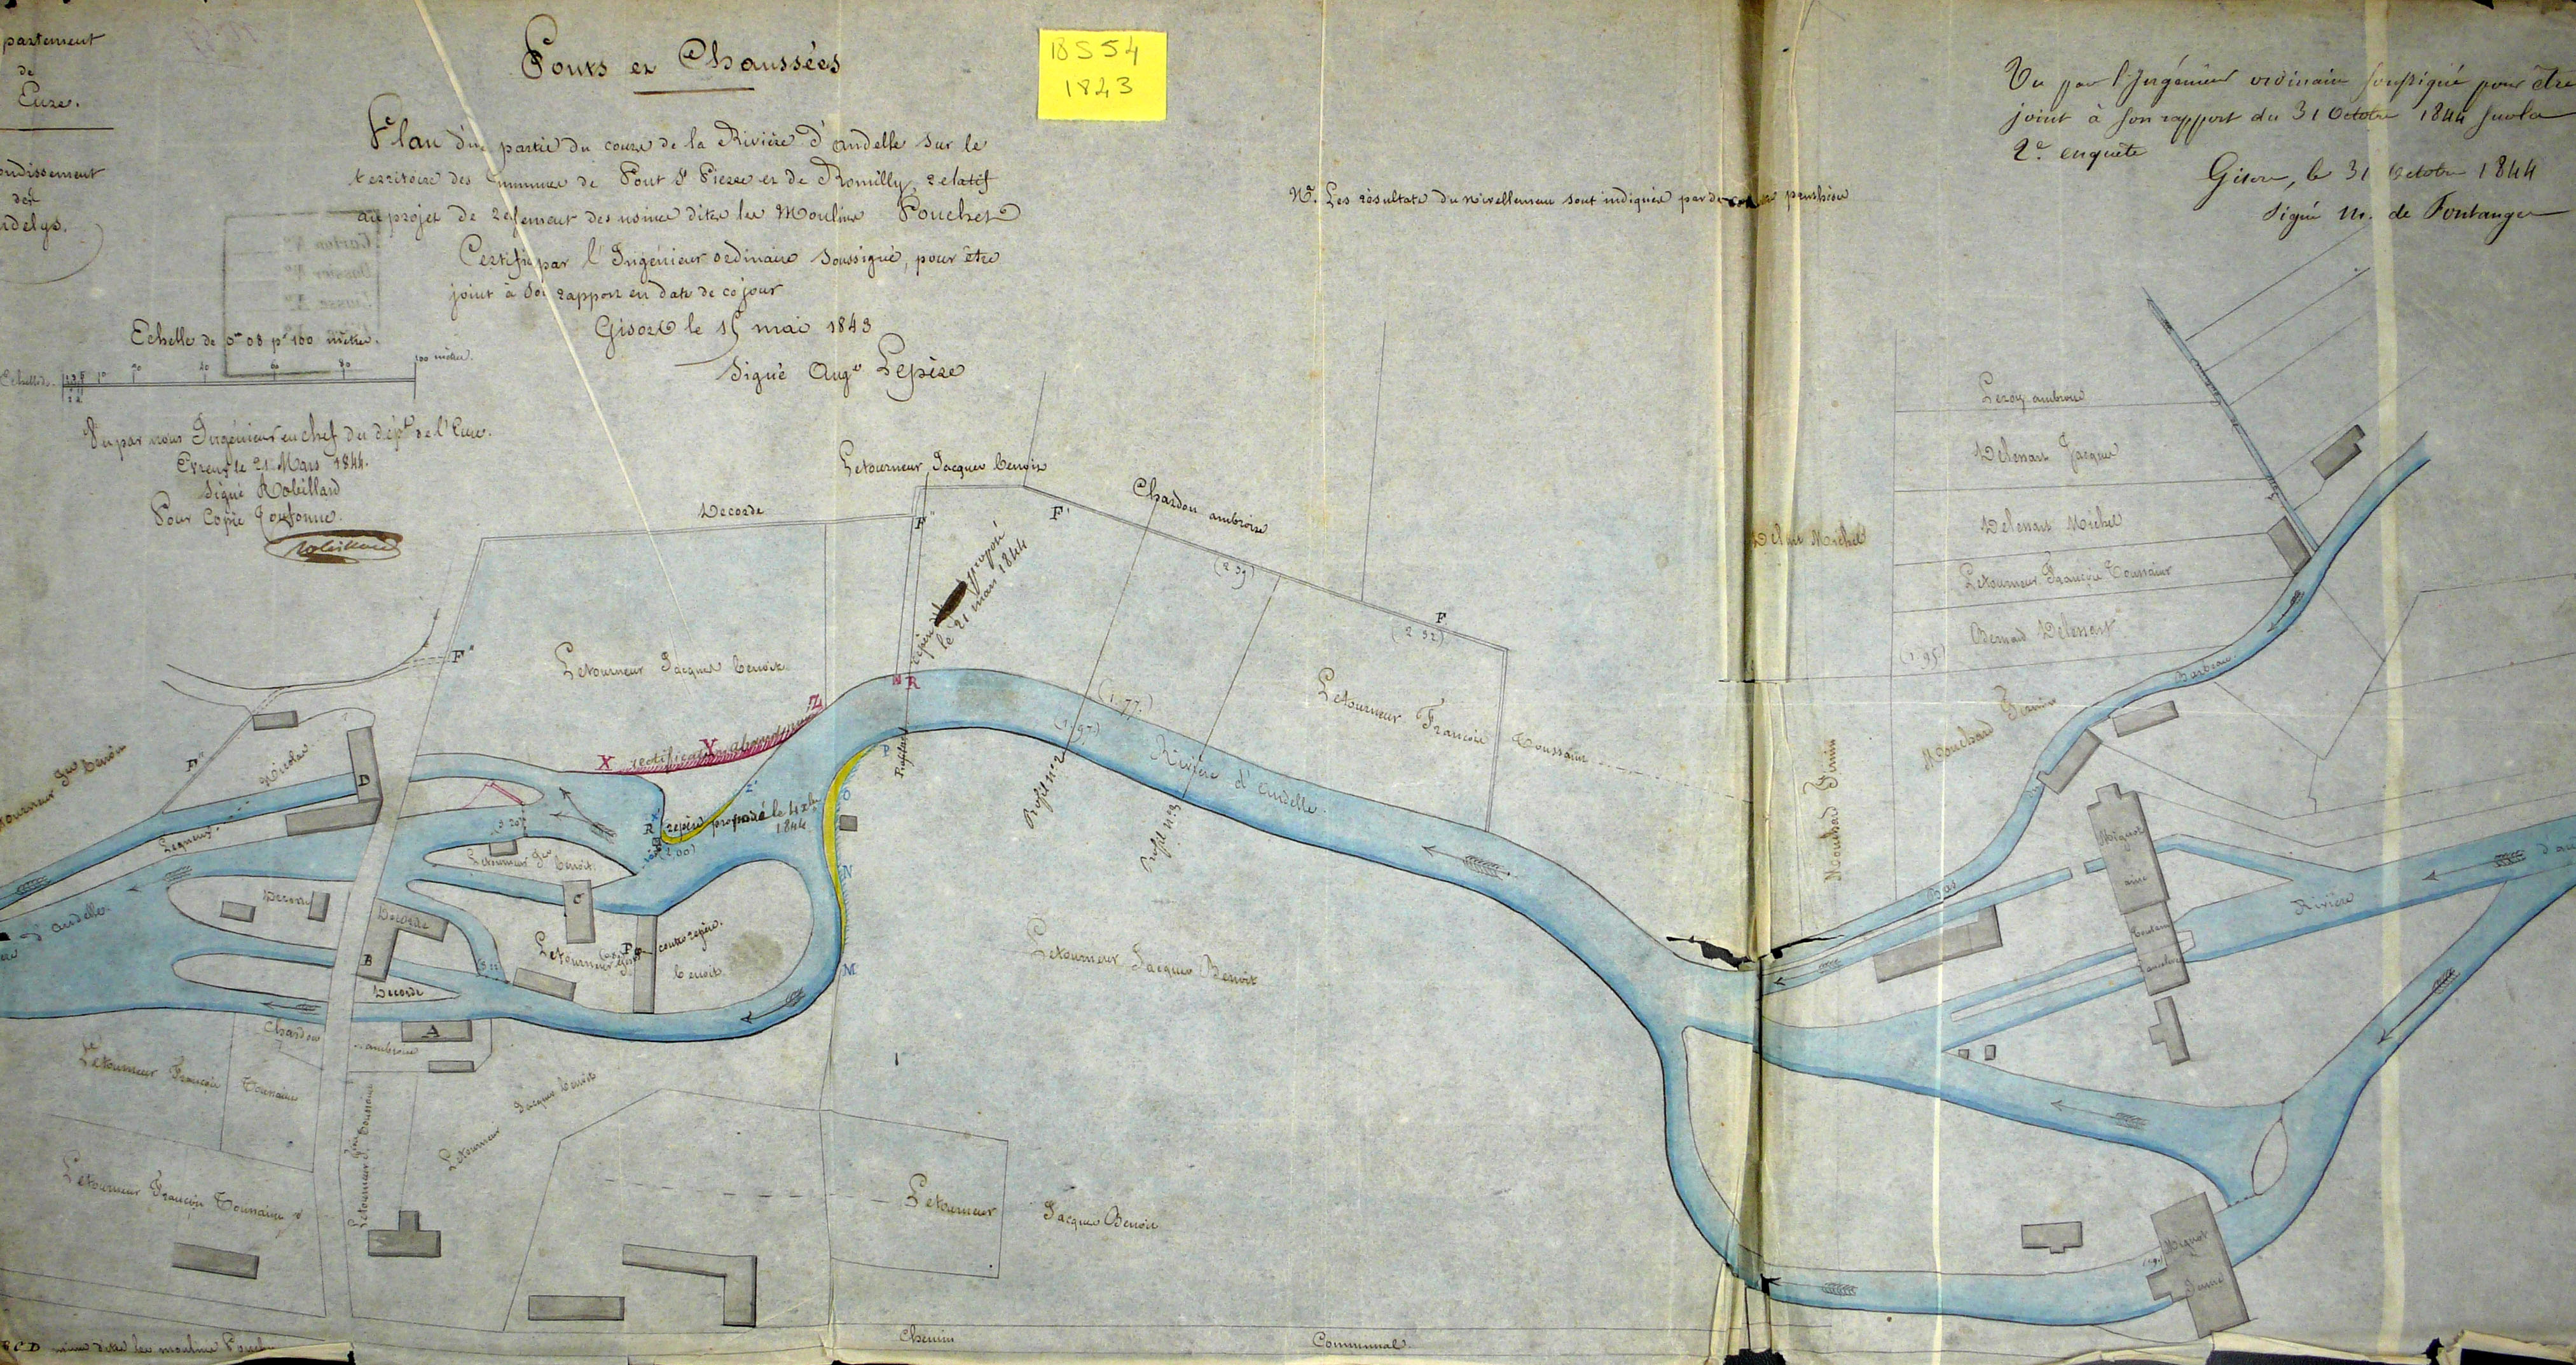 partement
de
Eure.
ondissement
des
ndelys.
Ponts et Chaussées
18S54
1843
Plan d'une partie du cours de la Rivière d'Andelle sur le
territoire des Communes de Pont St Pierre et de Romilly, relatif
au projet de règlement des usines dites les Moulins Pouchet
Certifié par l'Ingénieur ordinaire soussigné, pour être
joint à son rapport en date de ce jour
Gisors le 15 mai 1843
Signé Augte Lepère
Echelle de 0m 08 pr 100 mètres.
Echelle
10 20 40 60 80 100 mètres.
Vu par nous Ingénieur en chef du dépt de l'Eure.
Evreux le 21 Mars 1844.
Signé Robillard
Pour Copie Conforme.
Robillard
Na. Les résultats du nivellement sont indiqués par des cotes
Vu par l'Ingénieur ordinaire soussigné pour être
joint à son rapport du 31 Octobre 1844 sur la
2e. enquête
Gisors, le 31 Octobre 1844
Signé M. de Fontanges
Letourneur Jacques Benoit
Decorde
F"
F'
Chardon ambroise
(2 39)
F
(2 32)
proposé
le 21 mars 1844
Letourneur Jacques Benoit
F"
F"
Nicolas
D
X
Y
Z
rectification abandonnée
R
P
O
N
M
R
repère proposé le 4 xbre
1844
(2 00)
Profil n° 2
Profil n° 3
(1.77.)
(1.97.)
Rivière d'Andelle
Letourneur François Toussaint
Letourneur Jacques Benoit
Lequeux
d'andelle
Letourneur Jques Benoit.
Decorde
Decorde
B
C
Letourneur
Benoit
P
contre repère.
Decorde
A
Chardon
ambroise
Letourneur François Toussaint
Letourneur Jacques Benoit
Letourneur F. Toussaint
Letourneur François Toussaint
Letourneur Jacques Benoit
Chemin Communal.
B C D usines dites les moulins Pouchet
Leroy ambroise
Delessart Jacques
Delessart Michel
Letourneur François Toussaint
Bernard Delessart
(1.95)
Mouchard Firmin
Mouchard Firmin
Barbeau
Bras
Mignot
ainé
Rivière
d'an
Mignot
Jeune